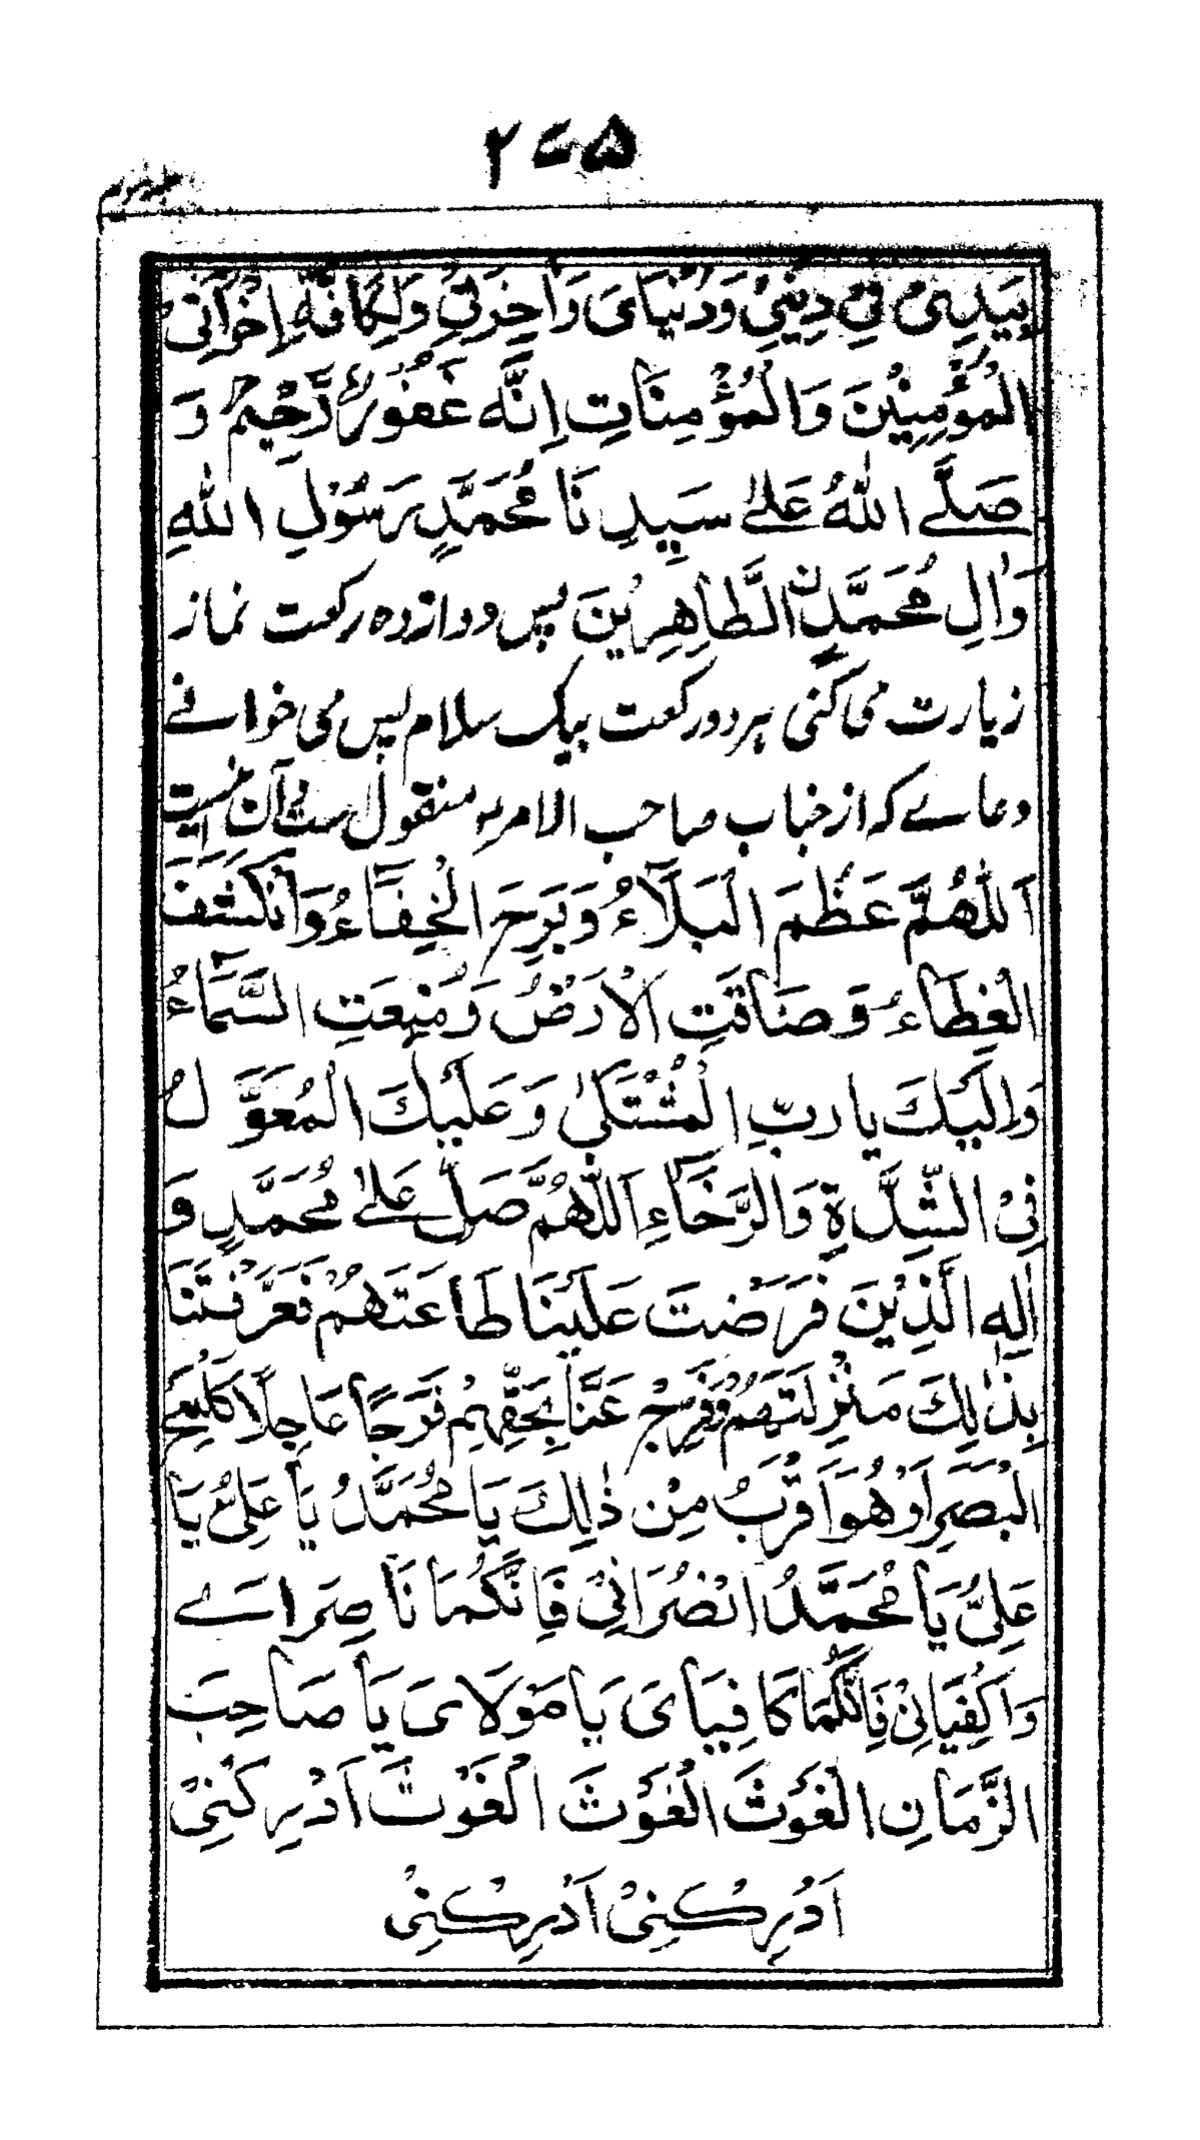 ۲۰۵
بِيَدِىْ فِىْ دِيْنِىْ وَدُنْيَاىَ وَاٰخِرَتِىْ وَلِكَافَّةِ اِخْوَانِىْ
الْمُؤْمِنِيْنَ وَالْمُؤْمِنَاتِ اِنَّهُ غَفُوْرٌ رَّحِيْمٌ وَ
صَلَّے اللّٰهُ عَلٰى سَيِّدِنَا مُحَمَّدٍ رَسُوْلِ اللّٰهِ
وَاٰلِ مُحَمَّدِنِ الطَّاهِرِيْنَ پس دوازده رکعت نماز
زیارت می کنی هر دو رکعت بیک سلام پس می خوانے
دعاے که از جناب صاحب الامر منقول ست آن اینست
اَللّٰهُمَّ عَظُمَ الْبَلَآءُ وَبَرِحَ الْخِفَآءُ وَانْكَشَفَ
الْغِطَاءُ وَضَاقَتِ الْاَرْضُ وَمُنِعَتِ السَّمَآءُ
وَاِلَيْكَ يَا رَبِّ الْمُشْتَكٰى وَعَلَيْكَ الْمُعَوَّلُ
فِى الشِّدَّةِ وَالرَّخَآءِ اَللّٰهُمَّ صَلِّ عَلٰى مُحَمَّدٍ وَ
اٰلِهِ الَّذِيْنَ فَرَضْتَ عَلَيْنَا طَاعَتَهُمْ فَعَرَّفْتَنَا
بِذٰلِكَ مَنْزِلَتَهُمْ فَفَرِّجْ عَنَّا بِحَقِّهِمْ فَرَجًا عَاجِلًا كَلَمْحِ
الْبَصَرِ اَوْ هُوَ اَقْرَبُ مِنْ ذٰلِكَ يَا مُحَمَّدُ يَا عَلِىُّ يَا
عَلِىُّ يَا مُحَمَّدُ انْصُرَانِىْ فَاِنَّكُمَا نَاصِرَاىَ
وَاكْفِيَانِىْ فَاِنَّكُمَا كَافِيَاىَ يَا مَوْلَاىَ يَا صَاحِبَ
الزَّمَانِ الْغَوْثَ الْغَوْثَ الْغَوْثَ اَدْرِكْنِىْ
اَدْرِكْنِىْ اَدْرِكْنِىْ